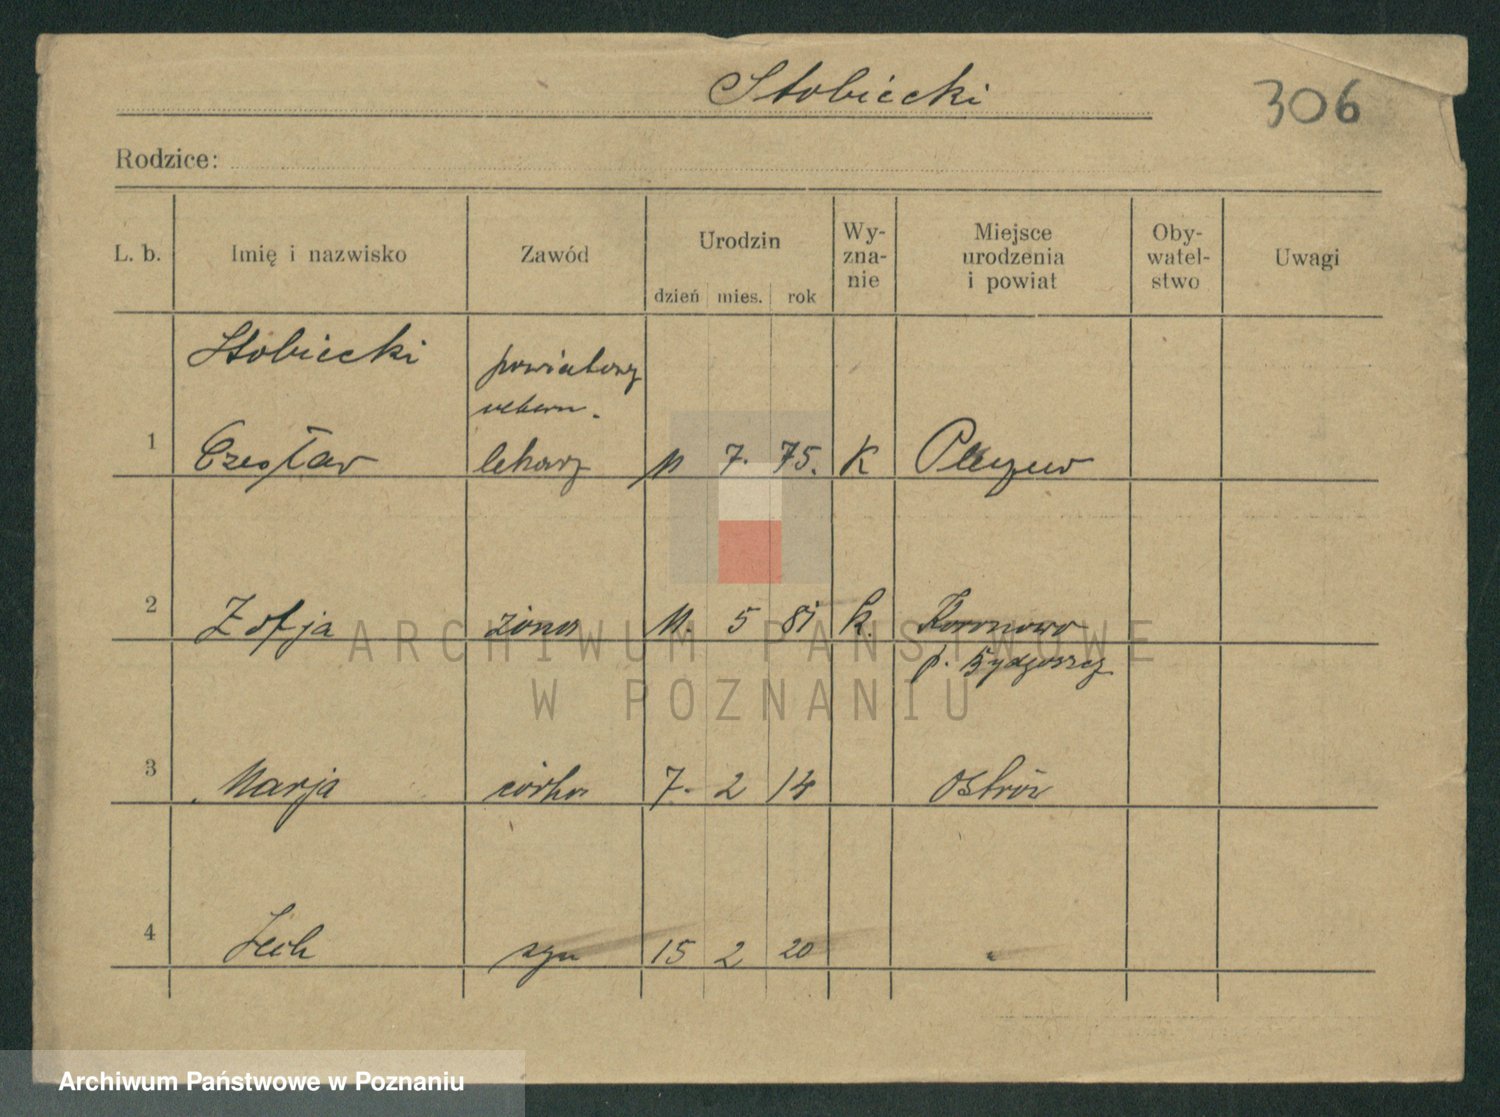 Stobiecki
306
Rodzice:
L. b. Imię i nazwisko Zawód Urodzin Wy-zna-nie Miejsce urodzenia i powiat Oby-watel-stwo Uwagi
dzień mies. rok
Stobiecki powiatowy
weter.
1 Czesław lekarz 11 7. 75. K Pleszew
2 Zofja żona 11. 5 81 k. Koronowo
p. Bydgoszcz
3 Marja córka 7. 2 14 Ostrów
4 Lech syn 15 2 20 "
ARCHIWUM PAŃSTWOWE
W POZNANIU
Archiwum Państwowe w Poznaniu